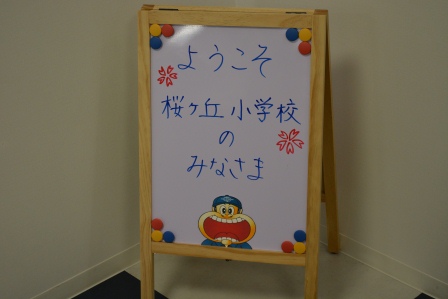 ようこそ
桜ヶ丘小学校
の
みなさま